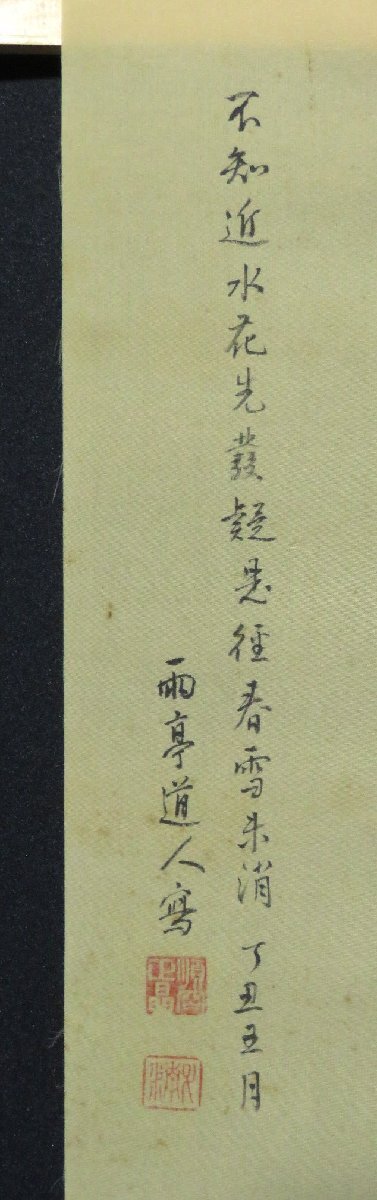 不知近水花先發疑是徑春雪未消 丁丑五月
雨亭道人寫